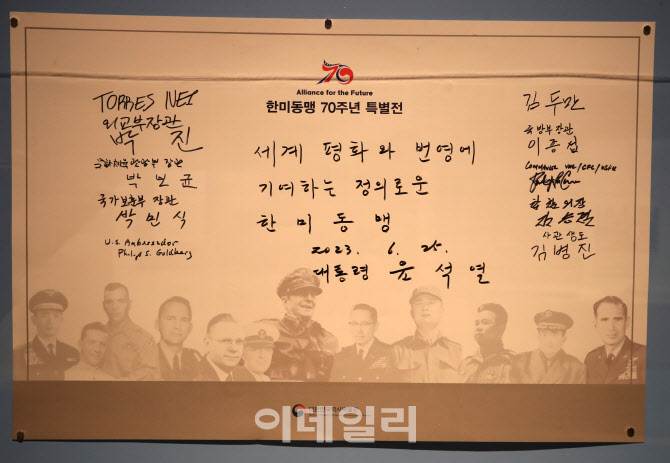 70
Alliance for the Future
한미동맹 70주년 특별전
TORRES NEI
외교부장관
박 진
문화체육관광부 장관
박 보균
국가보훈부 장관
박 민 식
U.S. Ambassador
Philip S. Goldberg
세계 평화와 번영에
기여하는 정의로운
한미동맹
2023. 6. 25.
대통령 윤석열
김두만
국방부장관
이종섭
Commander UNC/CFC/USFK
합참의장
김승겸
사관생도
김병진
이데일리